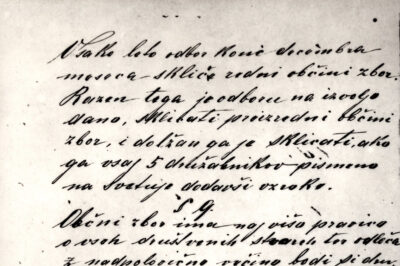 Vsako leto odbor konec decembra
meseca skliče redni občini zbor.
Razen tega je odboru na izvoljo
dano, sklicati preizredni občini
zbor, i dolžan ga je sklicati, ako
ga vsaj 5 družabnikov pismeno
na svetuje dodavši vzroke.
§ 9
Občni zbor ima najviso pravico
o vseh društvenih stvareh ter odloča
z nadpolovično večino bodi si dru